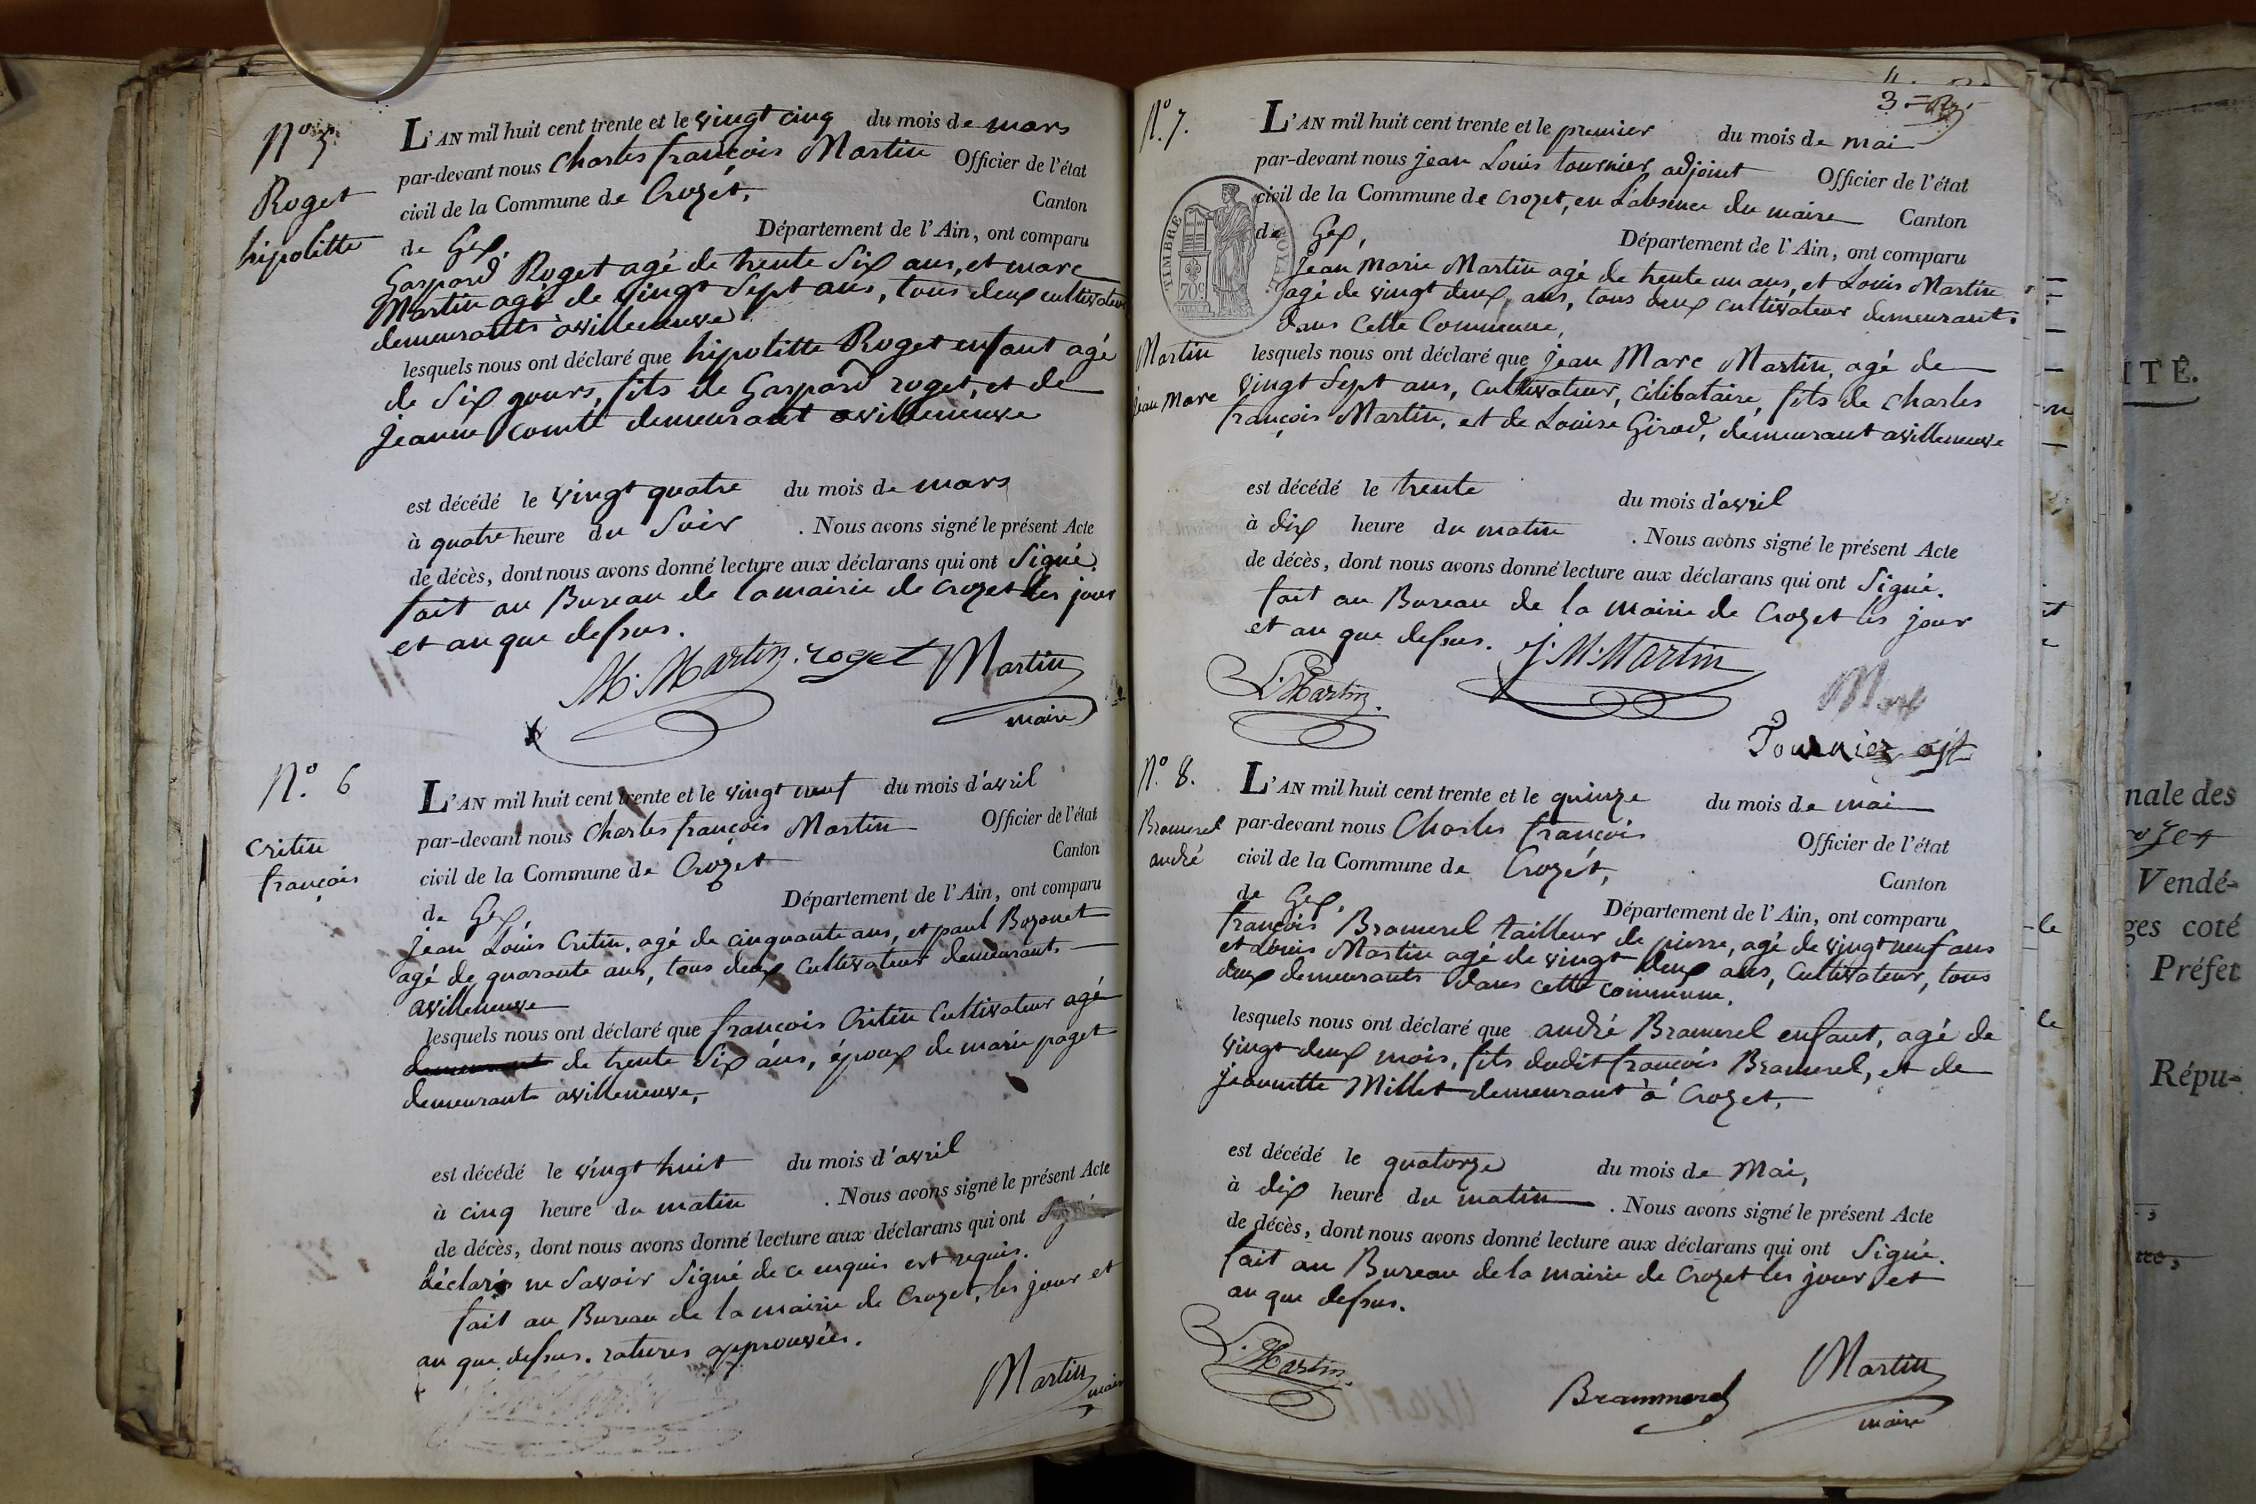 N.º 5.
Roget
hipolitte
L'AN mil huit cent trente et le vingt cinq du mois de mars
par-devant nous Charles françois Martin Officier de l'état
civil de la Commune de Crozet, Canton
de Gex, Département de l'Ain, ont comparu
Gaspard Roget agé de trente Six ans, et marc
Martin agé de vingt Sept ans, tous deux cultivateur
demeurants avilleneuve
lesquels nous ont déclaré que hipolitte Roget enfant agé
de Six jours, fils de Gaspard roget, et de
jeanne comte demeurant avilleneuve
est décédé le vingt quatre du mois de mars
à quatre heure du Soir . Nous avons signé le présent Acte
de décès, dont nous avons donné lecture aux déclarans qui ont Signé.
fait au Bureau de la mairie de crozet les jour
et an que dessus.
M. Martin. roget Martin
maire
N.º 6
Critin
françois
L'AN mil huit cent trente et le vingt neuf du mois d'avril
par-devant nous Charles françois Martin Officier de l'état
civil de la Commune de Crozet Canton
de Gex, Département de l'Ain, ont comparu
jean Louis Critin, agé de cinquante ans, et paul Bozonet
agé de quarante ans, tous deux Cultivateur demeurant
avilleneuve
lesquels nous ont déclaré que françois Critin Cultivateur agé
demeurant de trente Six ans, époux de marie paget
demeurant avilleneuve,
est décédé le vingt huit du mois d'avril
à cinq heure du matin . Nous avons signé le présent Acte
de décès, dont nous avons donné lecture aux déclarans qui ont
déclaré ne Savoir Signé de ce enquis est requis.
fait au Bureau de la mairie de Crozet, les jour et
an que dessus. ratures approuvées.
Martin
maire
4.
3.
N.º 7.
TIMBRE ROYAL
70c
Martin
jean Marc
L'AN mil huit cent trente et le premier du mois de mai
par-devant nous jean Louis tournier adjoint Officier de l'état
civil de la Commune de crozet, en l'absence du maire Canton
de Gex, Département de l'Ain, ont comparu
jean marie Martin agé de trente un ans, et Louis Martin
agé de vingt deux ans, tous deux cultivateur demeurant
dans Cette Commune,
lesquels nous ont déclaré que jean Marc Martin, agé de
vingt Sept ans, cultivateur, Célibataire, fils de Charles
françois Martin, et de Louise Girod, demeurant avilleneuve
est décédé le trente du mois d'avril
à dix heure du matin . Nous avons signé le présent Acte
de décès, dont nous avons donné lecture aux déclarans qui ont Signé.
fait au Bureau de la Mairie de Crozet les jour
et an que dessus. J. M. Martin
L. Martin.
Tournier ajt
N.º 8.
Bramerel
andré
L'AN mil huit cent trente et le quinze du mois de mai
par-devant nous Charles françois Officier de l'état
civil de la Commune de Crozét, Canton
de Gex, Département de l'Ain, ont comparu
françois Bramerel tailleur de pierre, agé de vingt neuf ans
et Louis Martin agé de vingt deux ans, Cultivateur, tous
deux demeurants dans cette commune.
lesquels nous ont déclaré que andré Bramerel enfant, agé de
vingt deux mois, fils dudit françois Bramerel, et de
jeannette Millet demeurant à Crozet,
est décédé le quatorze du mois de Mai,
à dix heure du matin . Nous avons signé le présent Acte
de décès, dont nous avons donné lecture aux déclarans qui ont Signé.
fait au Bureau de la mairie de Crozet les jour et
an que dessus.
L. Martin. Brammerel Martin
maire
ITÉ.
nale des
Vendé-
ges coté
Préfet
Répu-